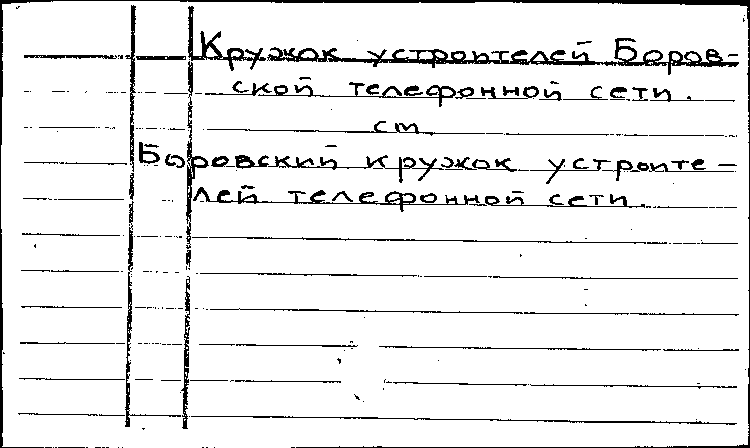 Кружок устроителей Боров-
ской телефонной сети.
см.
Боровский кружок устроите-
лей телефонной сети.